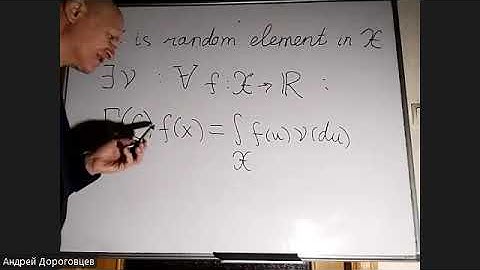 is random element in 𝒳
∃ν : ∀ f : 𝒳 → ℝ :
f(x) = ∫_𝒳 f(u) ν(du)
Андрей Дороговцев